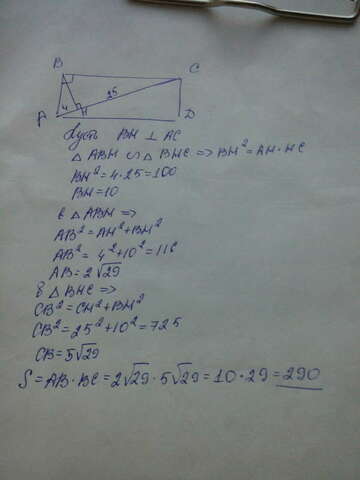 B
C
25
4
A
H
D
Пусть BH ⊥ AC
△ ABH ∽ △ BHC => BH² = AH · HC
BH² = 4 · 25 = 100
BH = 10
в △ ABH =>
AB² = AH² + BH²
AB² = 4² + 10² = 116
AB = 2√29
в △ BHC =>
CB² = CH² + BH²
CB² = 25² + 10² = 725
CB = 5√29
S = AB · BC = 2√29 · 5√29 = 10 · 29 = 290